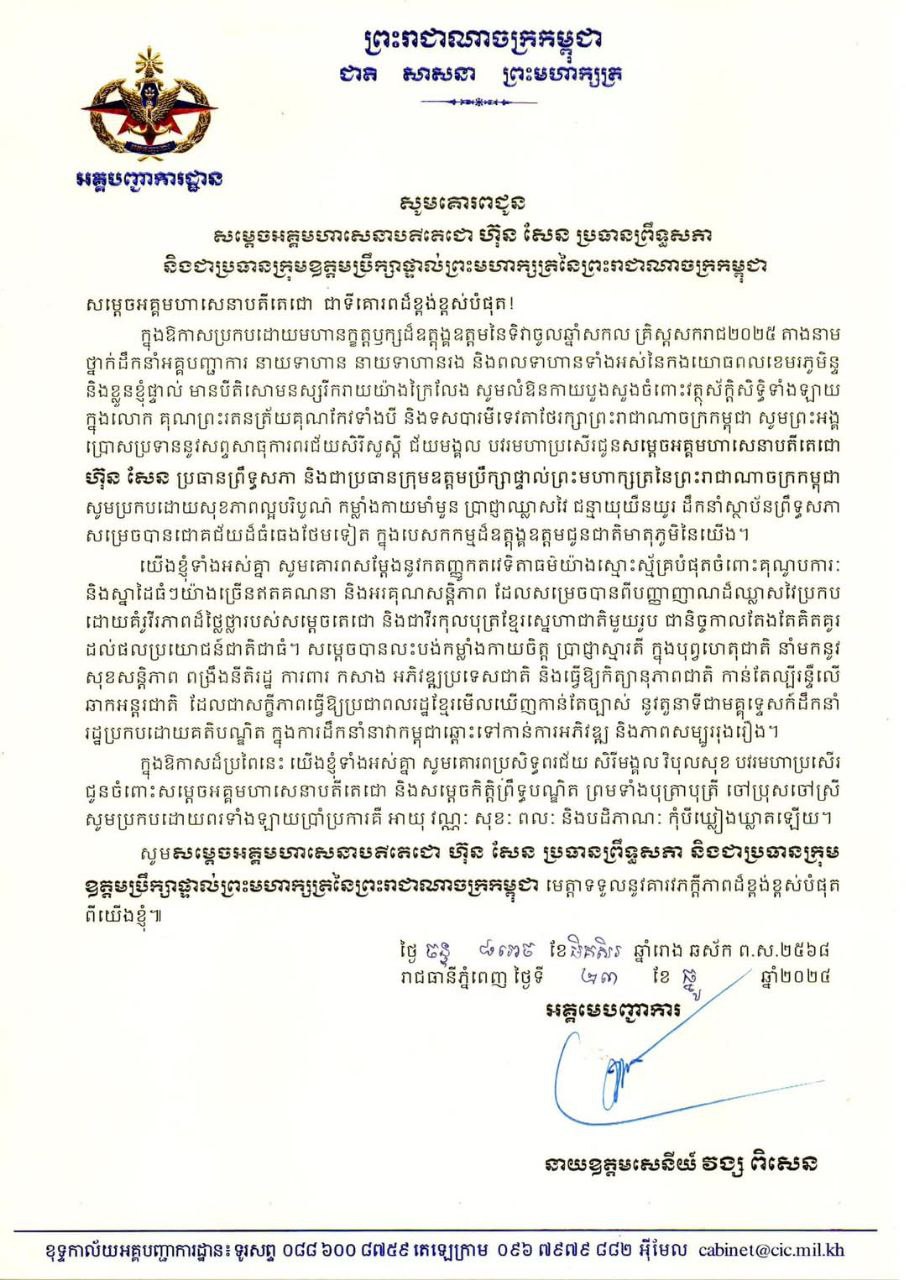 ព្រះរាជាណាចក្រកម្ពុជា
ជាតិ សាសនា ព្រះមហាក្សត្រ
អគ្គបញ្ជាការដ្ឋាន
សូមគោរពជូន
សម្តេចអគ្គមហាសេនាបតីតេជោ ហ៊ុន សែន ប្រធានព្រឹទ្ធសភា
និងជាប្រធានក្រុមឧត្តមប្រឹក្សាផ្ទាល់ព្រះមហាក្សត្រនៃព្រះរាជាណាចក្រកម្ពុជា
សម្តេចអគ្គមហាសេនាបតីតេជោ ជាទីគោរពដ៏ខ្ពង់ខ្ពស់បំផុត!
ក្នុងឱកាសប្រកបដោយមហានក្ខត្តឫក្សដ៏ឧត្តុង្គឧត្តមនៃទិវាចូលឆ្នាំសកល គ្រិស្តសករាជ២០២៥ តាងនាម
ថ្នាក់ដឹកនាំអគ្គបញ្ជាការ នាយទាហាន នាយទាហានរង និងពលទាហានទាំងអស់នៃកងយោធពលខេមរភូមិន្ទ
និងខ្លួនខ្ញុំផ្ទាល់ មានបីតិសោមនស្សរីករាយយ៉ាងក្រៃលែង សូមលំឱនកាយបួងសួងចំពោះវត្ថុស័ក្តិសិទ្ធិទាំងឡាយ
ក្នុងលោក គុណព្រះរតនត្រ័យគុណកែវទាំងបី និងទសបារមីទេវតាថែរក្សាព្រះរាជាណាចក្រកម្ពុជា សូមព្រះអង្គ
ប្រោសប្រទាននូវសព្ទសាធុការពរជ័យសិរីសួស្តី ជ័យមង្គល បវរមហាប្រសើរជូនសម្តេចអគ្គមហាសេនាបតីតេជោ
ហ៊ុន សែន ប្រធានព្រឹទ្ធសភា និងជាប្រធានក្រុមឧត្តមប្រឹក្សាផ្ទាល់ព្រះមហាក្សត្រនៃព្រះរាជាណាចក្រកម្ពុជា
សូមប្រកបដោយសុខភាពល្អបរិបូណ៌ កម្លាំងកាយមាំមួន ប្រាជ្ញាឈ្លាសវៃ ជន្មាយុយឺនយូរ ដឹកនាំស្ថាប័នព្រឹទ្ធសភា
សម្រេចបានជោគជ័យដ៏ធំធេងថែមទៀត ក្នុងបេសកកម្មដ៏ឧត្តុង្គឧត្តមជូនជាតិមាតុភូមិនៃយើង។
យើងខ្ញុំទាំងអស់គ្នា សូមគោរពសម្តែងនូវកតញ្ញូកតវេទិតាធម៌យ៉ាងស្មោះស្ម័គ្របំផុតចំពោះគុណូបការៈ
និងស្នាដៃធំៗយ៉ាងច្រើនឥតគណនា និងអរគុណសន្តិភាព ដែលសម្រេចបានពីបញ្ញាញាណដ៏ឈ្លាសវៃប្រកប
ដោយគំរូវីរភាពដ៏ថ្លៃថ្លារបស់សម្តេចតេជោ និងជាវីរកុលបុត្រខ្មែរស្នេហាជាតិមួយរូប ជានិច្ចកាលតែងតែគិតគូរ
ដល់ផលប្រយោជន៍ជាតិជាធំ។ សម្តេចបានលះបង់កម្លាំងកាយចិត្ត ប្រាជ្ញាស្មារតី ក្នុងបុព្វហេតុជាតិ នាំមកនូវ
សុខសន្តិភាព ពង្រឹងនីតិរដ្ឋ ការពារ កសាង អភិវឌ្ឍប្រទេសជាតិ និងធ្វើឱ្យកិត្យានុភាពជាតិ កាន់តែល្បីរន្ទឺលើ
ឆាកអន្តរជាតិ ដែលជាសក្ខីភាពធ្វើឱ្យប្រជាពលរដ្ឋខ្មែរមើលឃើញកាន់តែច្បាស់ នូវតួនាទីជាមគ្គុទ្ទេសក៍ដឹកនាំ
រដ្ឋប្រកបដោយគតិបណ្ឌិត ក្នុងការដឹកនាំនាវាកម្ពុជាឆ្ពោះទៅកាន់ការអភិវឌ្ឍ និងភាពសម្បូររុងរឿង។
ក្នុងឱកាសដ៏ប្រពៃនេះ យើងខ្ញុំទាំងអស់គ្នា សូមគោរពប្រសិទ្ធពរជ័យ សិរីមង្គល វិបុលសុខ បវរមហាប្រសើរ
ជូនចំពោះសម្តេចអគ្គមហាសេនាបតីតេជោ និងសម្តេចកិត្តិព្រឹទ្ធបណ្ឌិត ព្រមទាំងបុត្រាបុត្រី ចៅប្រុសចៅស្រី
សូមប្រកបដោយពរទាំងឡាយប្រាំប្រការគឺ អាយុ វណ្ណៈ សុខៈ ពលៈ និងបដិភាណៈ កុំបីឃ្លៀងឃ្លាតឡើយ។
សូមសម្តេចអគ្គមហាសេនាបតីតេជោ ហ៊ុន សែន ប្រធានព្រឹទ្ធសភា និងជាប្រធានក្រុម
ឧត្តមប្រឹក្សាផ្ទាល់ព្រះមហាក្សត្រនៃព្រះរាជាណាចក្រកម្ពុជា មេត្តាទទួលនូវគារវភក្តីភាពដ៏ខ្ពង់ខ្ពស់បំផុត
ពីយើងខ្ញុំ៕
ថ្ងៃ ចន្ទ ៨រោច ខែ មិគសិរ ឆ្នាំរោង ឆស័ក ព.ស.២៥៦៨
រាជធានីភ្នំពេញ ថ្ងៃទី ២៣ ខែ ធ្នូ ឆ្នាំ២០២៤
អគ្គមេបញ្ជាការ
នាយឧត្តមសេនីយ៍ វង្ស ពិសេន
ខុទ្ទកាល័យអគ្គបញ្ជាការដ្ឋាន៖ ទូរសព្ទ ០៨៨ ៦០០ ៨៧៥៩ តេឡេក្រាម ០៩៦ ៧៩៧៩ ៨៨២ អ៊ីមែល cabinet@cic.mil.kh